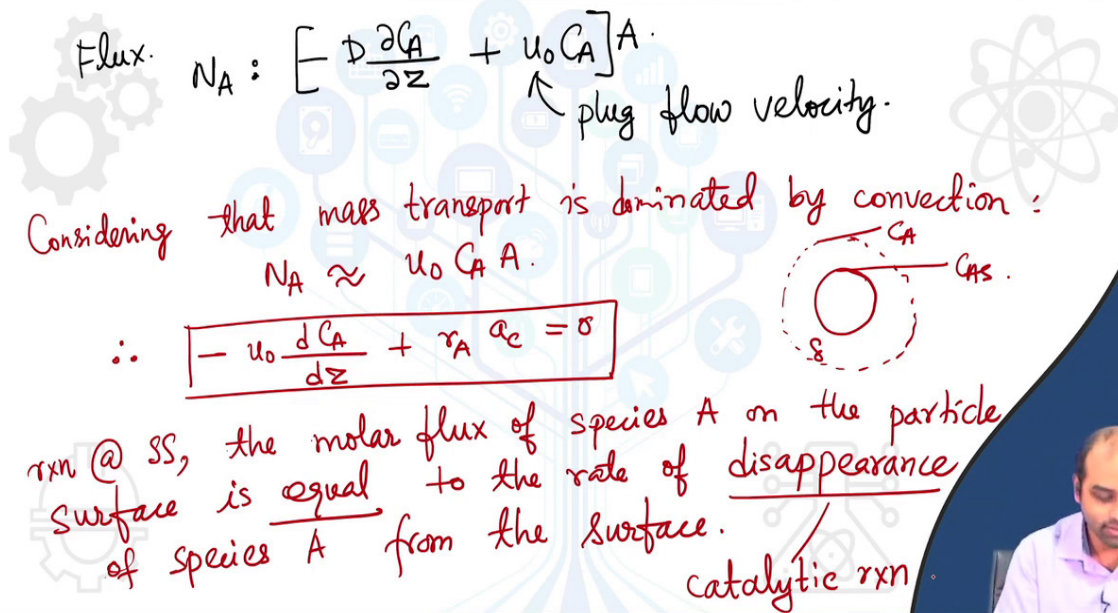 Flux. N_A : [- D ∂C_A/∂z + u_0 C_A] A.
plug flow velocity.
Considering that mass transport is dominated by convection :
N_A ≈ u_0 C_A A.
C_A
C_AS.
δ
∴ - u_0 dC_A/dz + r_A a_c = 0
rxn @ SS, the molar flux of species A on the particle
surface is equal to the rate of disappearance
of species A from the surface.
catalytic rxn